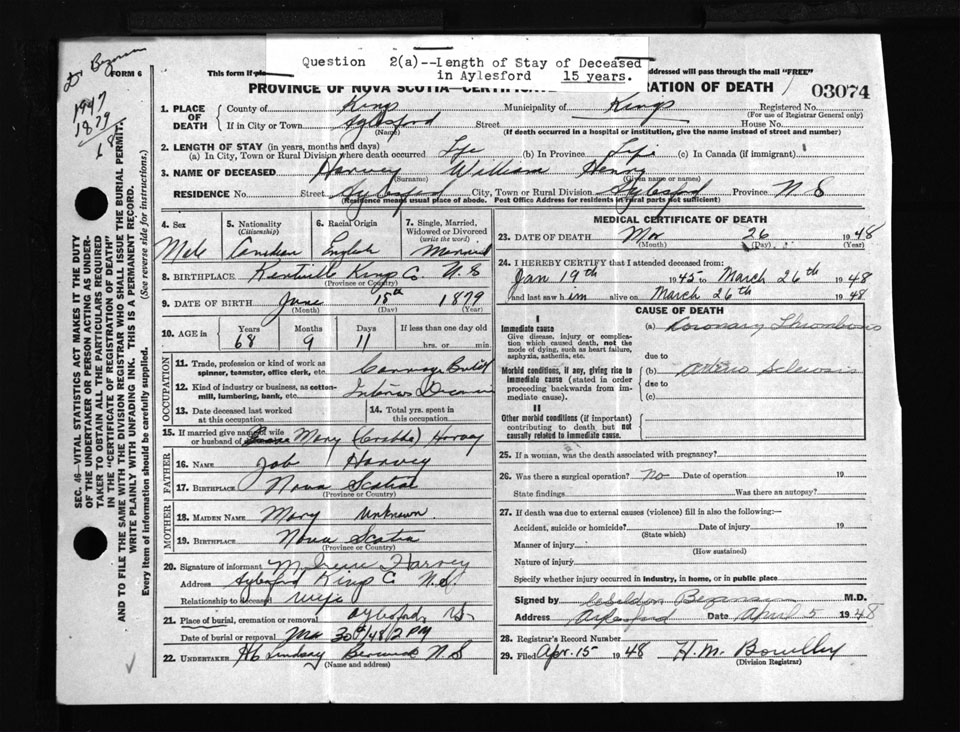 Question 2(a)--Length of Stay of Deceased
in Aylesford 15 years.
FORM 6
This form if
addressed will pass through the mail "FREE"
PROVINCE OF NOVA SCOTIA—CERTIFICATE
RATION OF DEATH
03074
1947
1879
18
1. PLACE OF DEATH
County of Kings Municipality of Kings Registered No.
(For use of Registrar General only)
If in City or Town Aylesford Street House No.
(Name) (If death occurred in a hospital or institution, give the name instead of street and number)
2. LENGTH OF STAY (in years, months and days)
(a) In City, Town or Rural Division where death occurred Life (b) In Province Life (c) In Canada (if immigrant)
3. NAME OF DECEASED Harvey William Henry
(Surname) (Given name or names)
RESIDENCE No. Street Aylesford City, Town or Rural Division Aylesford Province N S
(Residence means usual place of abode. Post Office Address for residents in rural parts not sufficient)
4. Sex Male
5. Nationality (Citizenship) Canadian
6. Racial Origin English
7. Single, Married, Widowed or Divorced (write the word) Married
8. BIRTHPLACE Kentville Kings Co. N S
(Province or Country)
9. DATE OF BIRTH June 15th 1879
(Month) (Day) (Year)
10. AGE in Years Months Days If less than one day old
68 9 11 hrs. or min.
OCCUPATION
11. Trade, profession or kind of work as spinner, teamster, office clerk, etc. Carriage
12. Kind of industry or business, as cotton-mill, lumbering, bank, etc. Interior
13. Date deceased last worked at this occupation
14. Total yrs. spent in this occupation
15. If married give name of wife or husband of Mary Harvey
FATHER
16. NAME Job Harvey
17. BIRTHPLACE Nova Scotia
(Province or Country)
MOTHER
18. MAIDEN NAME Mary Unknown
19. BIRTHPLACE Nova Scotia
(Province or Country)
20. Signature of informant M. Irene Harvey
Address Aylesford Kings C N.S
Relationship to deceased wife
21. Place of burial, cremation or removal Aylesford, N.S.
Date of burial or removal Mar 30th/48/2 PM
22. UNDERTAKER Lindsay Berwick N S
(Name and address)
MEDICAL CERTIFICATE OF DEATH
23. DATE OF DEATH Mar 26 1948
(Month) (Day) (Year)
24. I HEREBY CERTIFY that I attended deceased from:
Jan 19th 1945 to March 26th 1948
and last saw him alive on March 26th 1948
CAUSE OF DEATH
I
Immediate cause
Give disease, injury or complication which caused death, not the mode of dying, such as heart failure, asphyxia, asthenia, etc.
(a) Coronary Thrombosis
due to
Morbid conditions, if any, giving rise to immediate cause (stated in order proceeding backwards from immediate cause).
(b) Arterio Sclerosis
due to
(c)
II
Other morbid conditions (if important) contributing to death but not causally related to immediate cause.
25. If a woman, was the death associated with pregnancy?
26. Was there a surgical operation? No Date of operation 19
State findings Was there an autopsy?
27. If death was due to external causes (violence) fill in also the following:—
Accident, suicide or homicide? Date of injury 19
(State which)
Manner of injury
(How sustained)
Nature of injury
Specify whether injury occurred in industry, in home, or in public place
Signed by M.D.
Address Aylesford Date April 5 1948
28. Registrar's Record Number
29. Filed Apr. 15 1948 H. M.
(Division Registrar)
SEC. 46—VITAL STATISTICS ACT MAKES IT THE DUTY
OF THE UNDERTAKER OR PERSON ACTING AS UNDERTAKER TO OBTAIN ALL THE PARTICULARS REQUIRED
IN THE "CERTIFICATE OF REGISTRATION OF DEATH"
AND TO FILE THE SAME WITH THE DIVISION REGISTRAR WHO SHALL ISSUE THE BURIAL PERMIT.
WRITE PLAINLY WITH UNFADING INK. THIS IS A PERMANENT RECORD.
Every item of information should be carefully supplied. (See reverse side for instructions.)